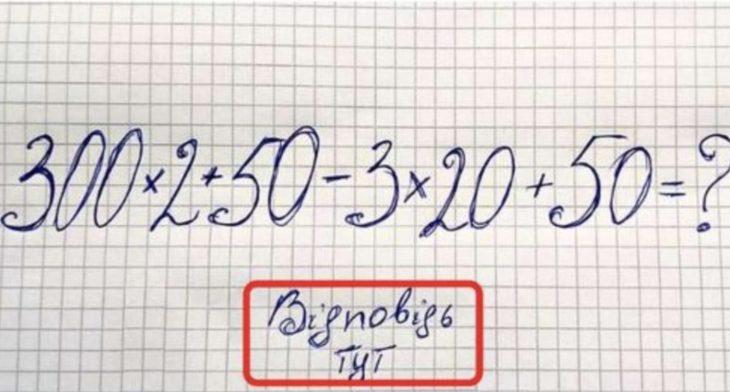 300×2+50-3×20+50=?
Відповідь
тут